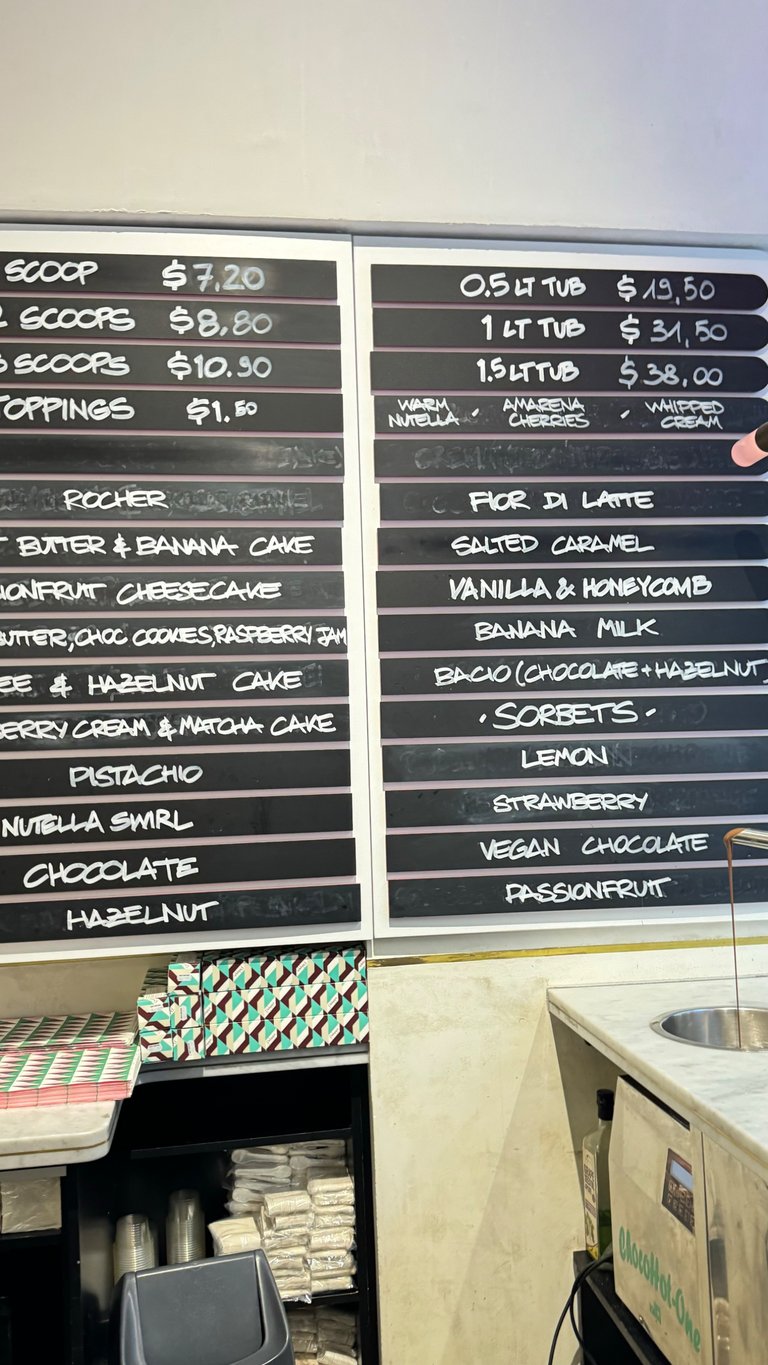 SCOOP $7,20
SCOOPS $8,80
SCOOPS $10.90
TOPPINGS $1.50
ROCHER
BUTTER & BANANA CAKE
CHEESECAKE
BUTTER, CHOC COOKIES, RASPBERRY JAM
& HAZELNUT CAKE
CREAM & MATCHA CAKE
PISTACHIO
NUTELLA SWIRL
CHOCOLATE
HAZELNUT
0.5 LT TUB $19,50
1 LT TUB $31,50
1.5 LT TUB $38,00
WARM NUTELLA · AMARENA CHERRIES · WHIPPED CREAM
FIOR DI LATTE
SALTED CARAMEL
VANILLA & HONEYCOMB
BANANA MILK
BACIO (CHOCOLATE + HAZELNUT)
· SORBETS ·
LEMON
STRAWBERRY
VEGAN CHOCOLATE
PASSIONFRUIT
ChocoHot-One